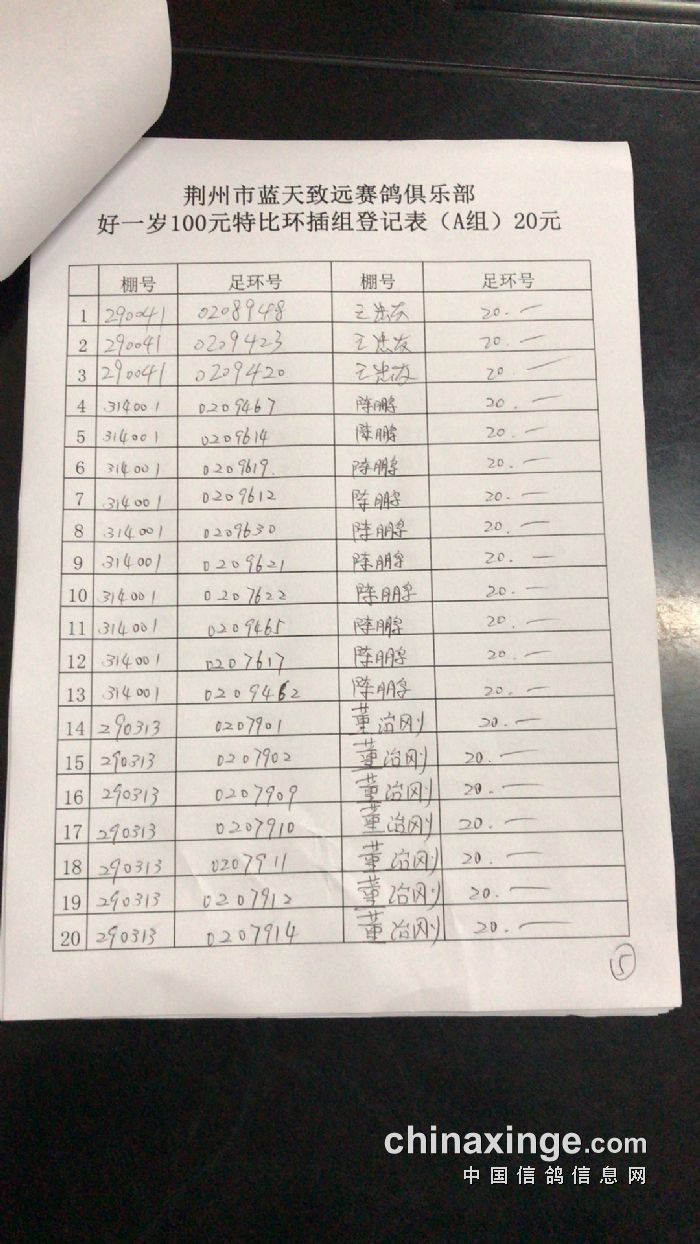 荆州市蓝天致远赛鸽俱乐部
好一岁100元特比环插组登记表（A组）20元
棚号 足环号 棚号 足环号
1 290041 0208948 20.一
2 290041 0209423 20.一
3 290041 0209420 20一
4 314001 0209467 陈鹏 20.一
5 314001 0209614 陈鹏 20.一
6 314001 0209619. 陈鹏 20.一
7 314001 0209612 陈鹏 20.一
8 314001 0209630 陈鹏 20.一
9 314001 0209621 陈鹏 20.一
10 314001 0207622 陈鹏 20.一
11 314001 0209465 陈鹏 20.一
12 314001 0207617 陈鹏 20.一
13 314001 0209462 陈鹏 20.一
14 290313 0207901 董治刚 20.一
15 290313 0207902 董治刚 20.一
16 290313 0207909 董治刚 20.一
17 290313 0207910 董治刚 20.一
18 290313 0207911 董治刚 20.一
19 290313 0207912 董治刚 20.一
20 290313 0207914 董治刚 20.一
⑤
chinaxinge.com
中国信鸽信息网